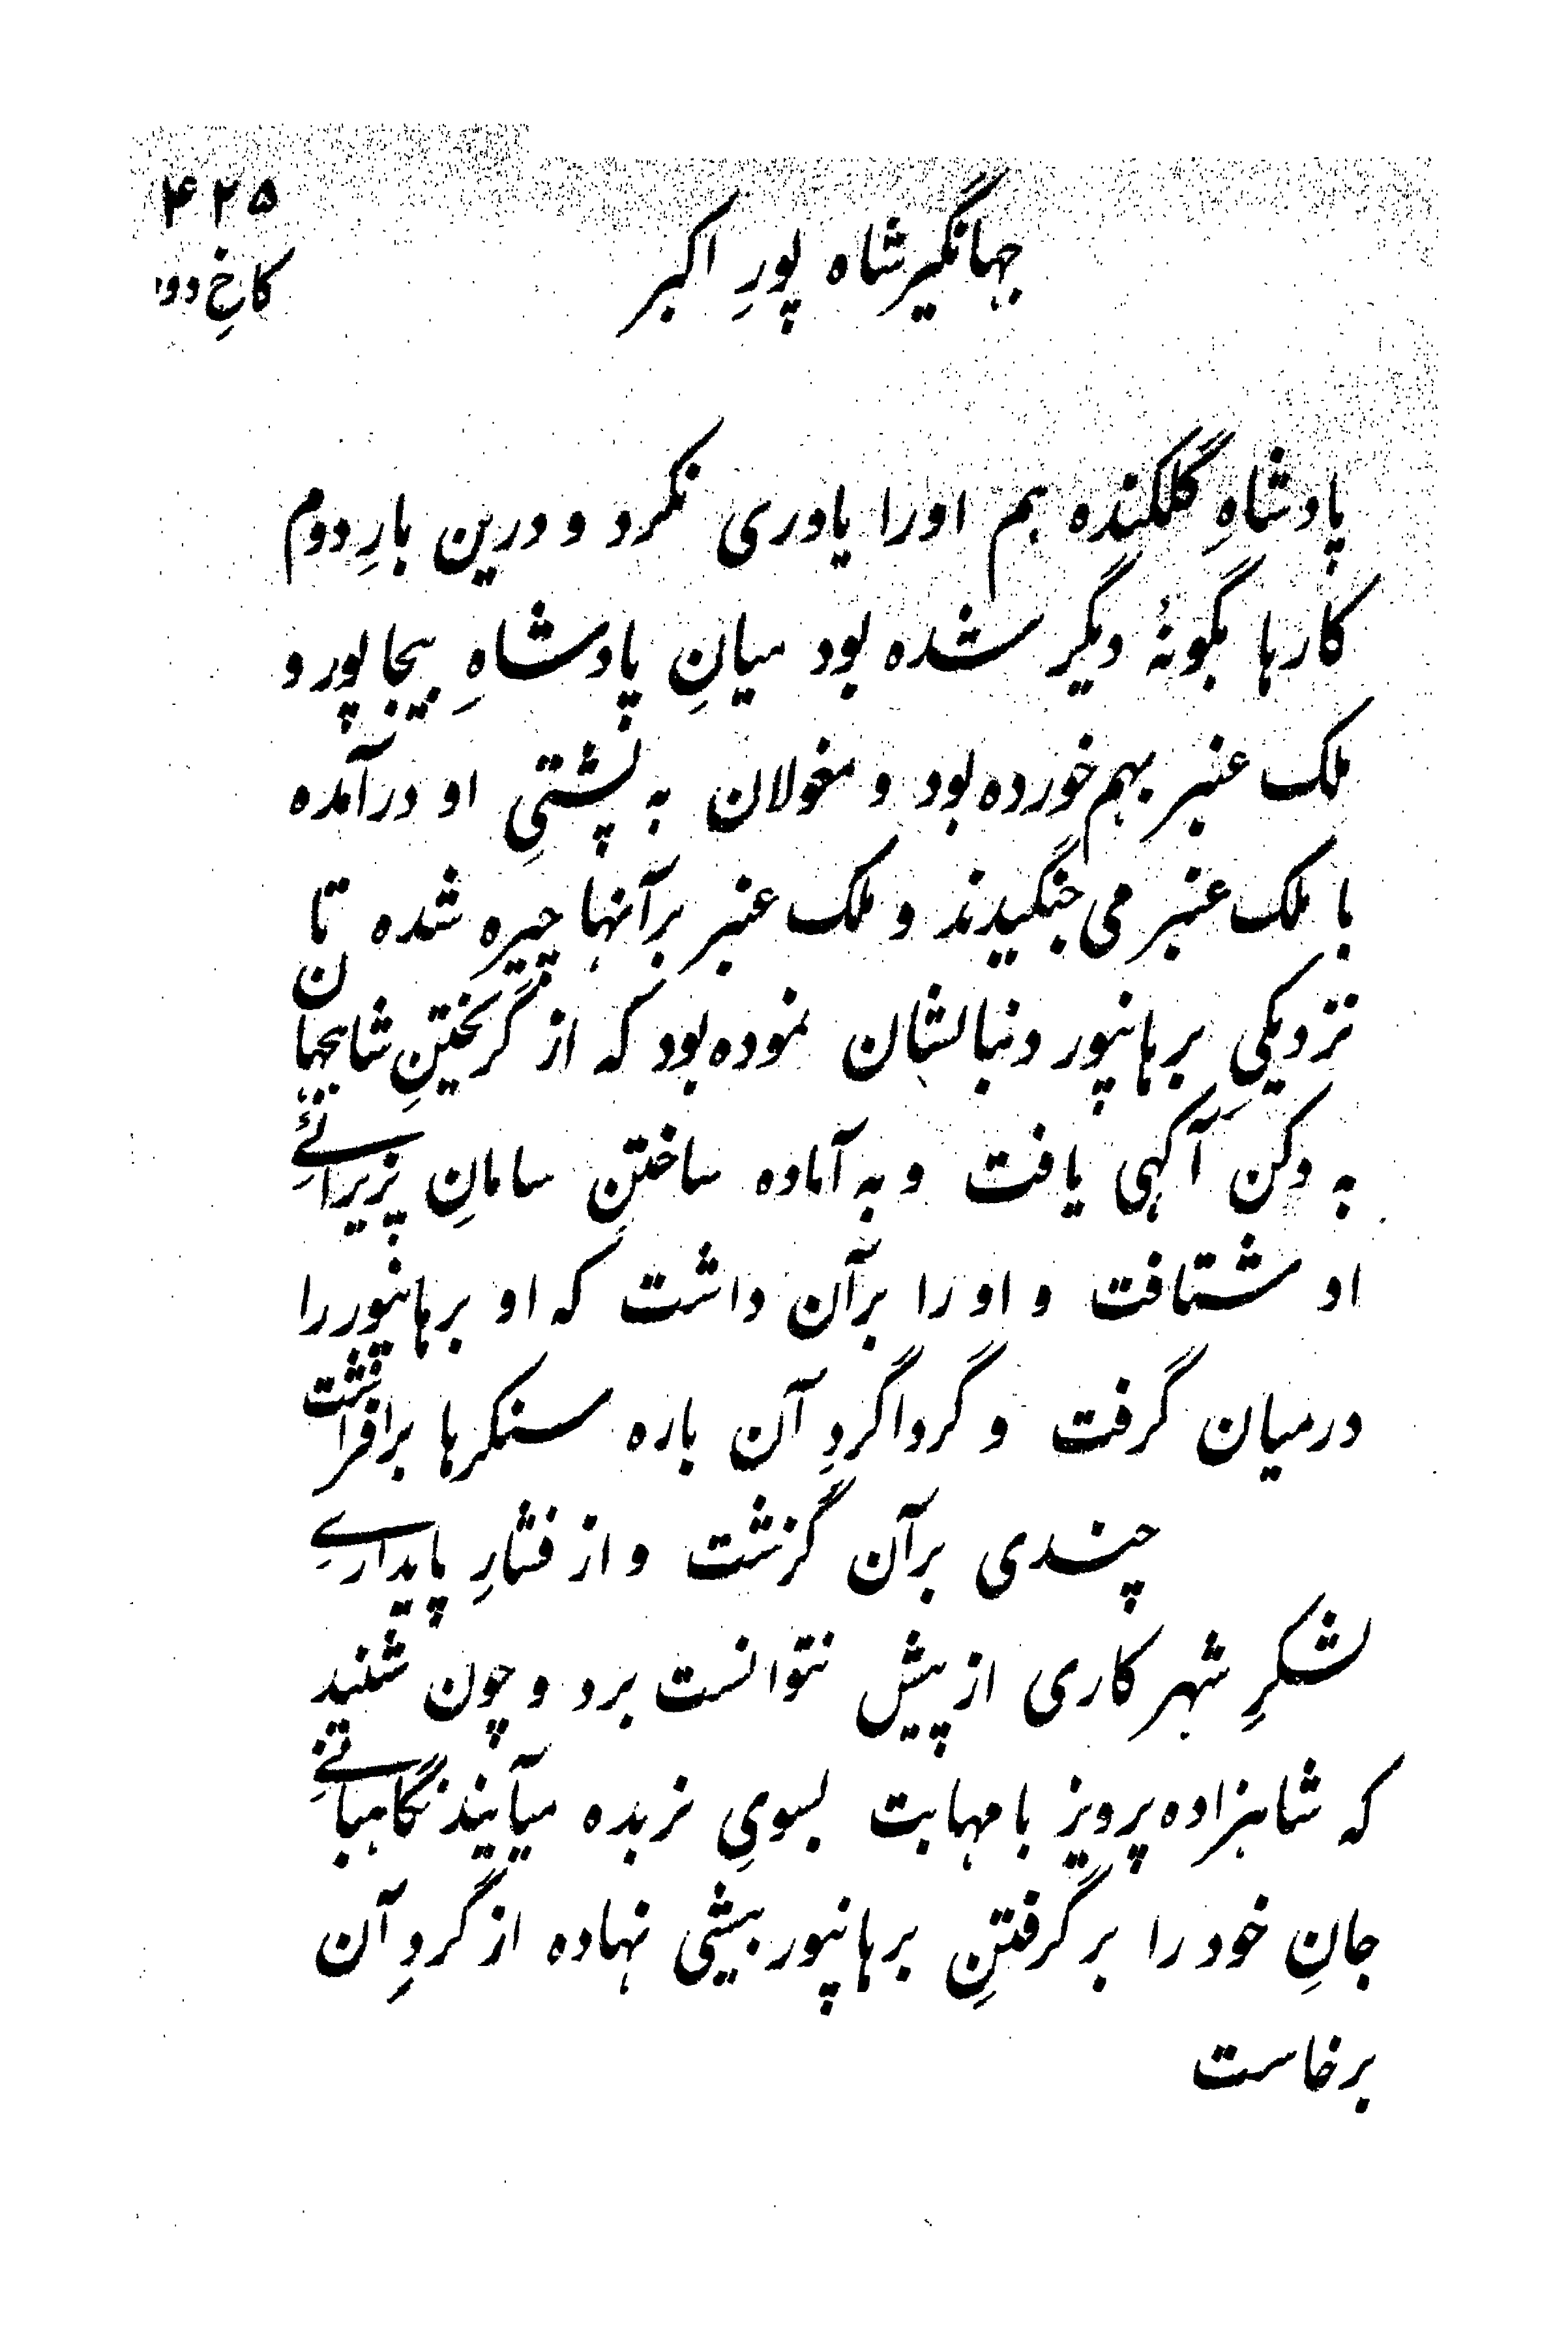 ۴۲۵
جهانگیر شاه پورِ اکبر
کاخِ دوم
پادشاهِ گلکنده هم اورا یاوری نکرد و درین بارِ دوم
کارها بگونهٔ دیگر شده بود میانِ پادشاهِ بیجاپور و
ملک عنبر بهم خورده بود و مغولان به پشتیِ او درآمده
با ملک عنبر می جنگیدند و ملک عنبر برآنها چیره شده تا
نزدیکیِ برهانپور دنبالشان نموده بود که از گریختنِ شاهجهان
به دکن آگهی یافت و به آماده ساختنِ سامانِ پزیرائےِ
او شتافت و او را برآن داشت که او برهانپور را
درمیان گرفت و گرداگردِ آن باره سنکرها برافراشت
چندی برآن گزشت و از فشارِ پایدارےِ
لشکرِ شهر کاری از پیش نتوانست برد و چون شنید
که شاهزاده پرویز با مهابت بسویِ نربده میآیند نگاهبانےِ
جانِ خود را بر گرفتنِ برهانپور بیشی نهاده از گردِ آن
برخاست